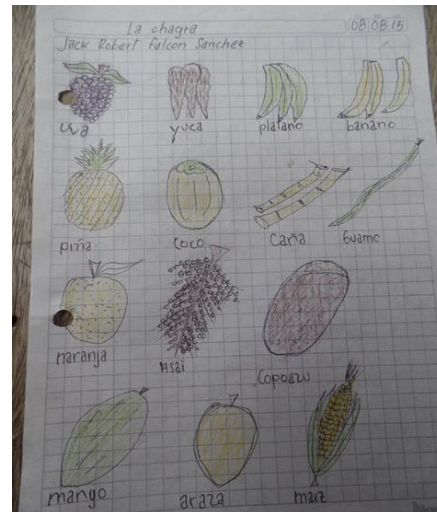 La chagra 08 08 15
Jack Robert falcon Sanchez
uva yuca platano banano
piña coco Caña Guamo
naranja Asai Copoazu
mango araza maiz